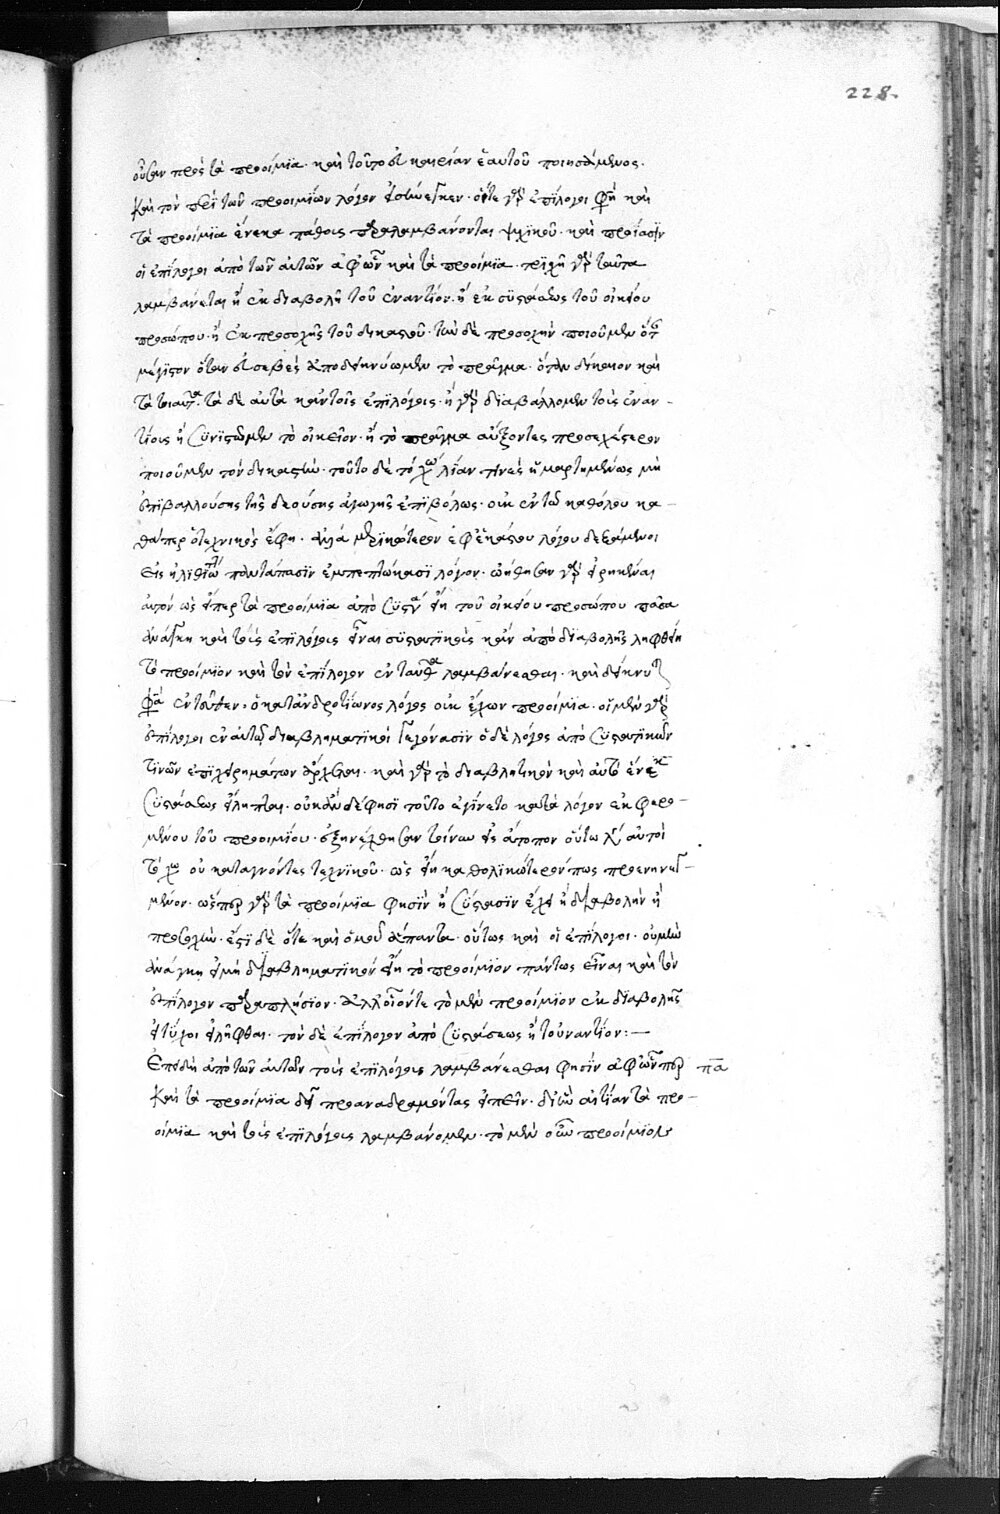 228.
οὖσαν πρὸς τὰ προοίμια. καὶ τοῦτο εὐκαιρίαν ἑαυτοῦ ποιησάμενος.
καὶ τὸν περὶ τῶν προοιμίων λόγον ὅτε γὰρ ἐπίλογοι φησὶ καὶ
τὰ προοίμια ἕνεκα πάθους παραλαμβάνονται ψυχικοῦ. καὶ προΐασϊν
οἱ ἐπίλογοι ἀπὸ τῶν αὐτῶν ἀφ' ὧν καὶ τὰ προοίμια. τριχῆ γὰρ ταῦτα
λαμβάνεται ἢ ἐκ διαβολῆς τοῦ ἐναντίου. ἢ ἐκ συστάσεως τοῦ οἰκείου
προσώπου. ἢ ἐκ προσοχῆς τοῦ δικαστοῦ. τὴν δὲ προσοχὴν ποιοῦμεν
μέγιστον ὅταν εὐσεβὲς ἀποδεικνύωμεν τὸ πρᾶγμα. ὅταν δίκαιον καὶ
τὰ τοιαῦτα. τὰ δὲ αὐτὰ κἀν τοῖς ἐπιλόγοις. ἢ γὰρ διαβάλλομεν τοὺς ἐναν-
τίους ἢ συνιστῶμεν τὸ οἰκεῖον. ἢ τὸ πρᾶγμα αὔξοντες προσεχέστερον
ποιοῦμεν τὸν δικαστήν. τοῦτο δὲ τὸ χωρίον λίαν τινὲς ἡμαρτημένως μὴ
ἐπιβαλλούσης τῆς δεούσης ἀγωγῆς ἐπιβόλως. οὐκ ἐν τῷ καθόλου κα-
θάπερ ὁ τεχνικὸς ἔφη. ἀλλὰ μερικώτερον ἐφ' ἑκάστου λόγου δεξάμενοι
εἰς ἠλίθιον παντάπασιν ἐμπεπτώκασι λόγον. ᾠήθησαν γὰρ εἰρηκέναι
αὐτὸν ὡς εἴπερ τὰ προοίμια ἀπὸ συστάσεως εἴη τοῦ οἰκείου προσώπου πᾶσα
ἀνάγκη καὶ τοὺς ἐπιλόγους εἶναι συστατικοὺς κἂν ἀπὸ διαβολῆς ληφθείη
τὸ προοίμιον καὶ τὸν ἐπίλογον ἐνταῦθα λαμβάνεσθαι. καὶ δείκνυται
φασὶ ἐντεῦθεν. ὁ κατ' Ἀνδροτίωνος λόγος οὐκ ἔχων προοίμια. οἱ μὲν γὰρ
ἐπίλογοι ἐν αὐτῷ διαβληματικοὶ γεγόνασιν ὁ δὲ λόγος ἀπὸ συστατικῶν
τινῶν ἐπιχειρημάτων ἄρχεται. καὶ γὰρ τὸ διαβλητικὸν καὶ αὐτὸ ἕνεκα
συστάσεως εἴληπται. οὐκ ἂν δέ φησι τοῦτο ἐγίνετο κατὰ λόγον ἐκφερο-
μένου τοῦ προοιμίου. ἐξηνέχθησαν τοίνυν εἰς ἄτοπον οὕτω καὶ αὐτοὶ
οὐ καταγνόντες τεχνικοῦ. ὡς εἴη καθολικώτερόν πως προενηνεγ-
μένον. ὥσπερ γὰρ τὰ προοίμια φησὶν ἢ σύστασιν ἔχει ἢ διαβολὴν ἢ
προσοχήν. ἔστι δὲ ὅτε καὶ ὁμοῦ ἅπαντα. οὕτως καὶ οἱ ἐπίλογοι. οὐ μὴν
ἀνάγκη εἰ μὴ διαβληματικὸν εἴη τὸ προοίμιον πάντως εἶναι καὶ τὸν
ἐπίλογον παραπλήσιον. ἀλλ' οἷόν τε τὸ μὲν προοίμιον ἐκ διαβολῆς
εἰ τύχοι εἰλῆφθαι. τὸν δὲ ἐπίλογον ἀπὸ συστάσεως ἢ τοὐναντίον:—
Ἐπειδὴ ἀπὸ τῶν αὐτῶν τοὺς ἐπιλόγους λαμβάνεσθαι φησὶν ἀφ' ὧνπερ πα
καὶ τὰ προοίμια δεῖ προαναδραμόντας εἰπεῖν. δι' ἣν αἰτίαν τὰ προ-
οίμια καὶ τοὺς ἐπιλόγους λαμβάνομεν. τὸ μὲν οὖν προοίμιον